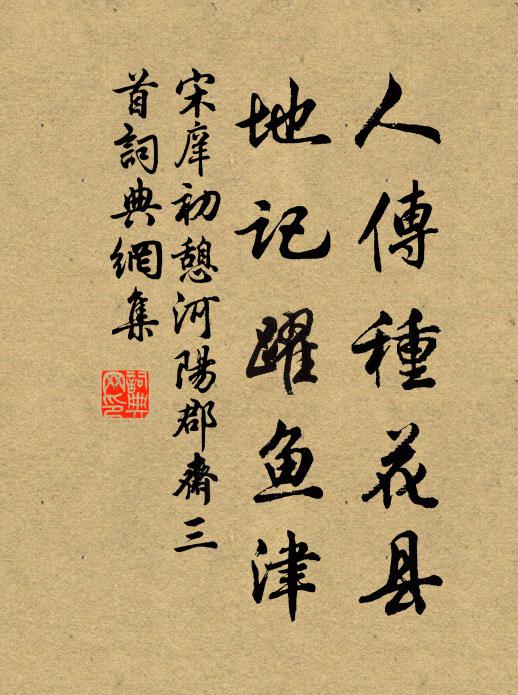 人傳種花县
地记躍鱼津
宋庠初憩河陽郡齋三
首詞典網集
詞典
网印